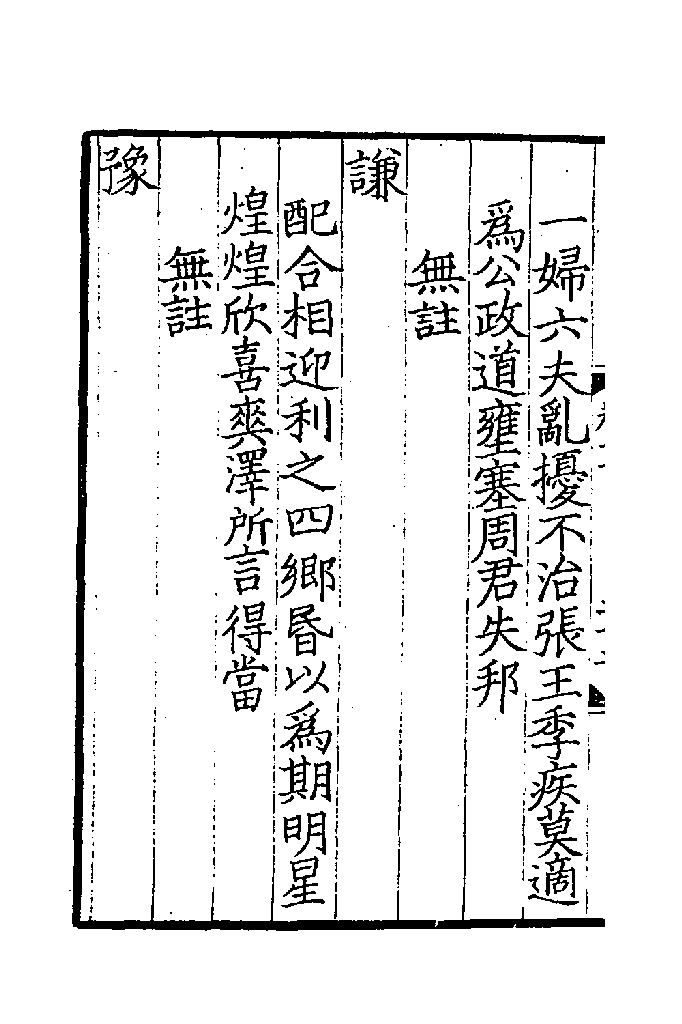 一婦六夫亂擾不治張王季疾莫適
爲公政道壅塞周君失邦
無註
謙
配合相迎利之四鄉昏以爲期明星
煌煌欣喜爽澤所言得當
無註
豫